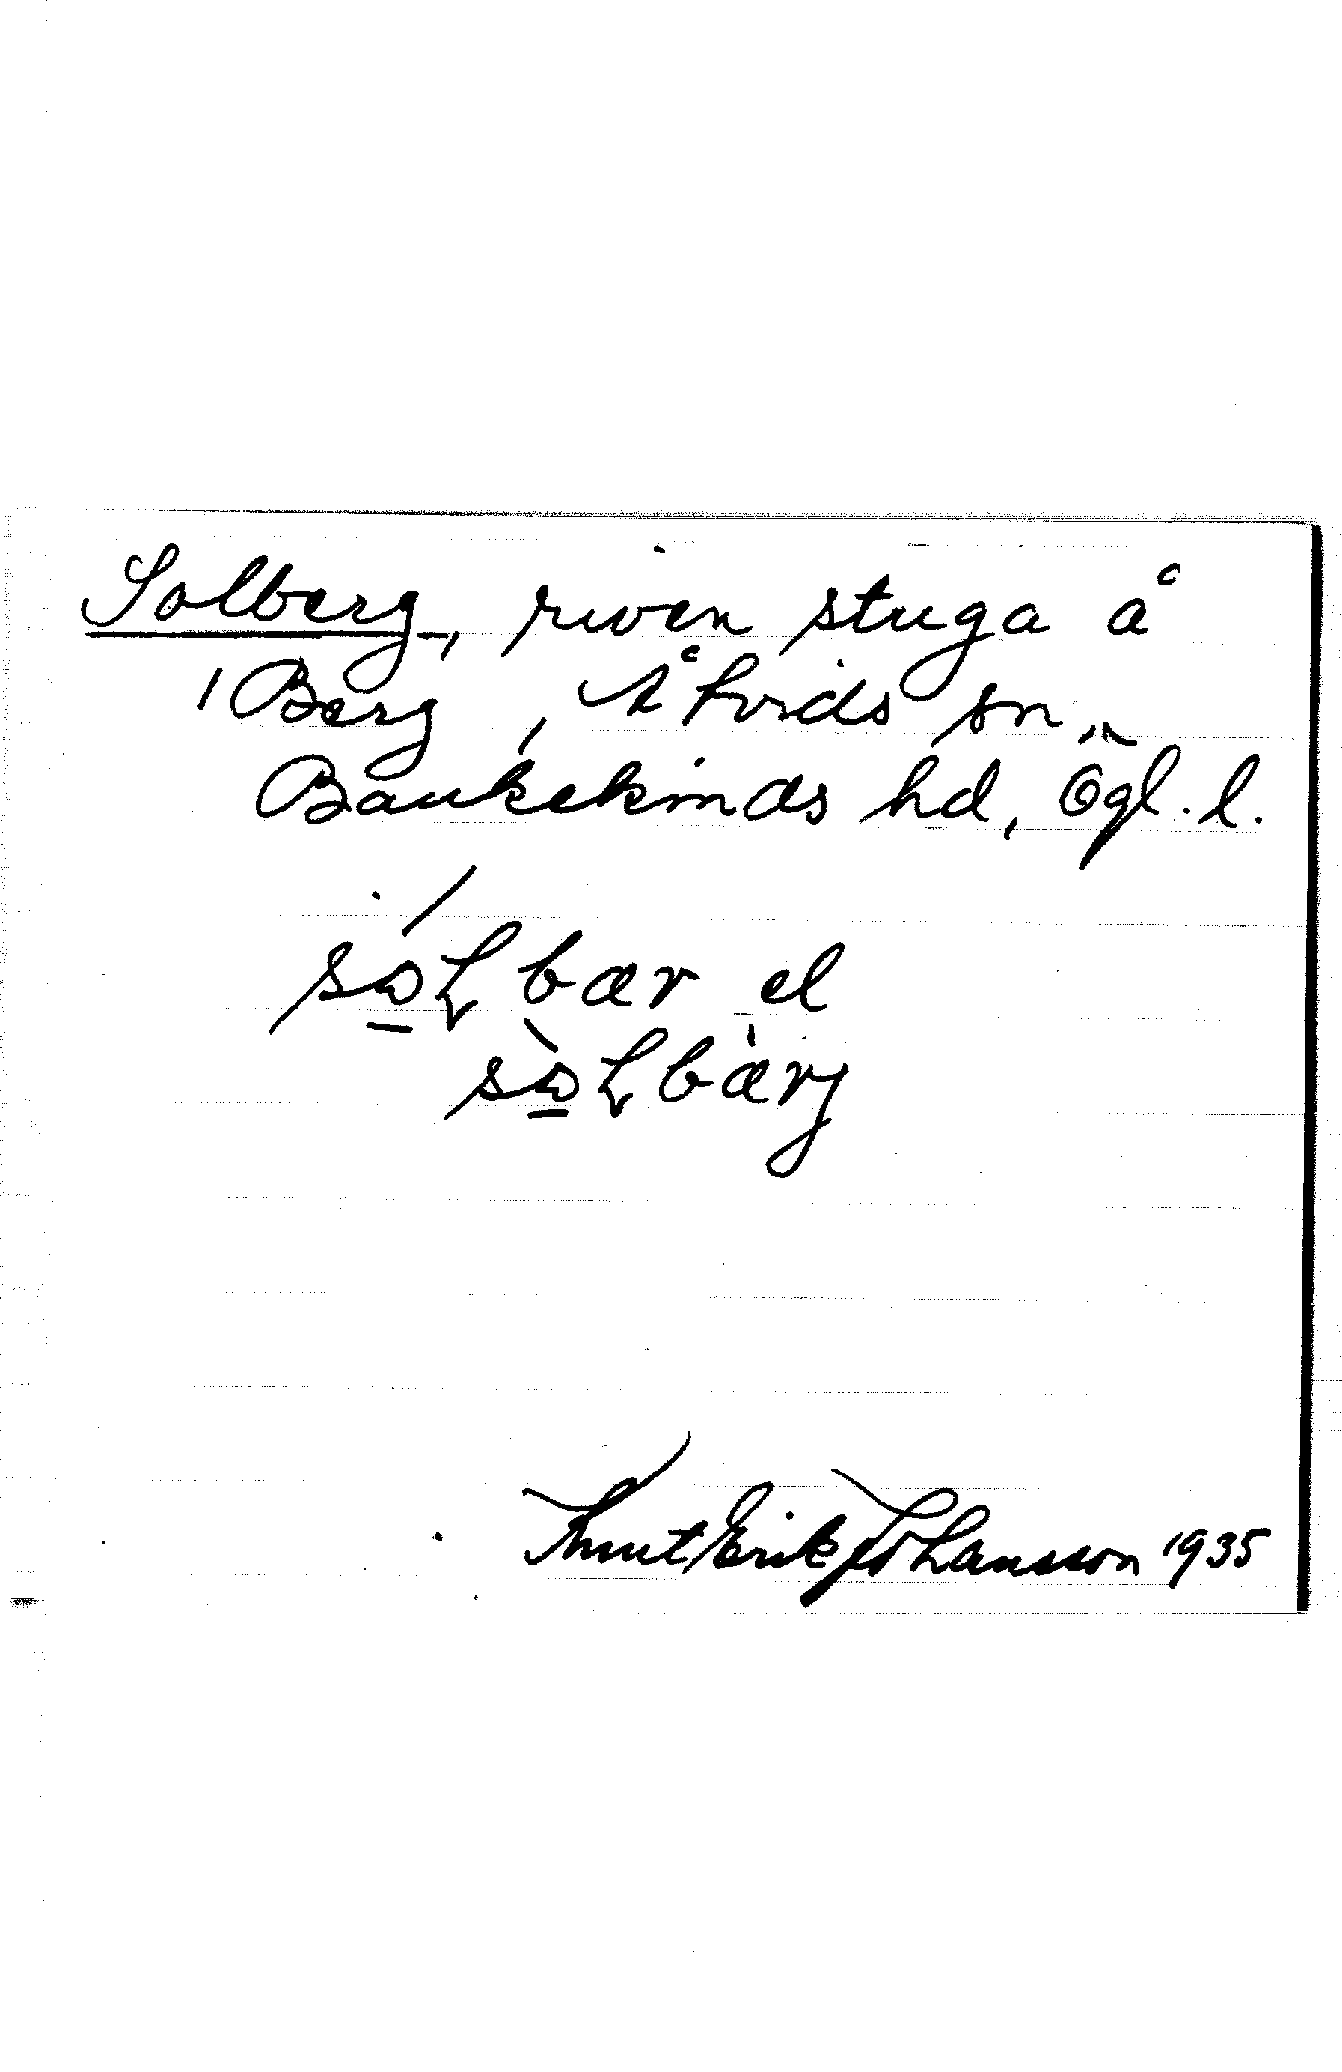 Solberg, riven stuga å
Berg, Åtvids sn,
Bankekinds hd, Ögl. l.
el
Knut Erik Johansson 1935